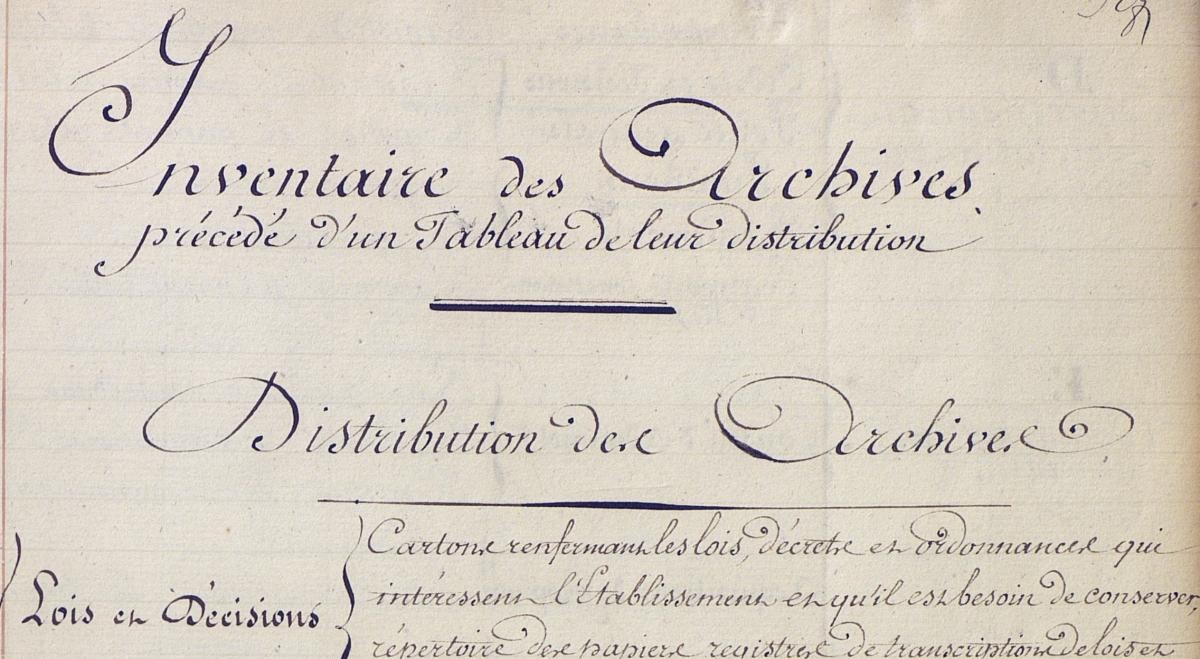 Inventaire des Archives
précédé d'un Tableau de leur distribution
Distribution des Archives
Cartons renfermant les lois, décrets et ordonnances qui
Lois et Décisions
intéressent l'Etablissement et qu'il est besoin de conserver,
répertoire des papiers registres de transcriptions de lois et